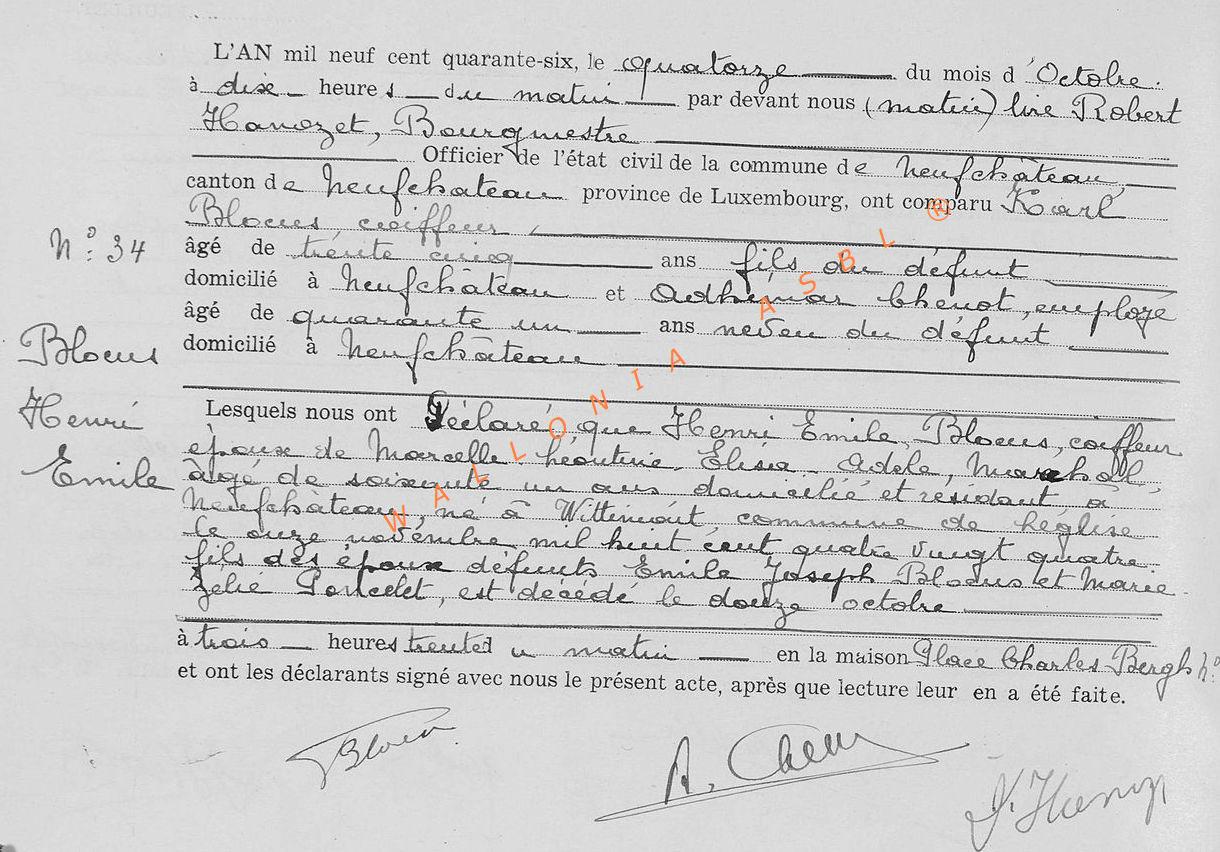 L'AN mil neuf cent quarante-six, le quatorze du mois d'Octobre.
à dix heures du matin par devant nous (matin) lire Robert
Hanozet, Bourgmestre
Officier de l'état civil de la commune de Neufchâteau,
canton de Neufchâteau province de Luxembourg, ont comparu Karl
Blocus, coiffeur,
N° 34
âgé de trente cinq ans fils du défunt
domicilié à Neufchâteau et Adhémar Chenot, employé
âgé de quarante un ans neveu du défunt
Blocus
domicilié à Neufchâteau
Henri
Lesquels nous ont Déclaré, que Henri Emile, Blocus, coiffeur
époux de Marcelle Léontine Elisa Adèle, Maréchal,
Emile
âgé de soixante un ans domicilié et résidant à
Neufchâteau, né à Wittimont, commune de Léglise
le onze novembre mil huit cent quatre vingt quatre
fils des époux défunts Emile Joseph Blocus et Marie
Zélie Poncelet, est décédé le douze octobre
à trois heures trente du matin en la maison Place Charles Bergh n°
et ont les déclarants signé avec nous le présent acte, après que lecture leur en a été faite.
Blocus
A. Chenot
WALLONIA ASBL ®